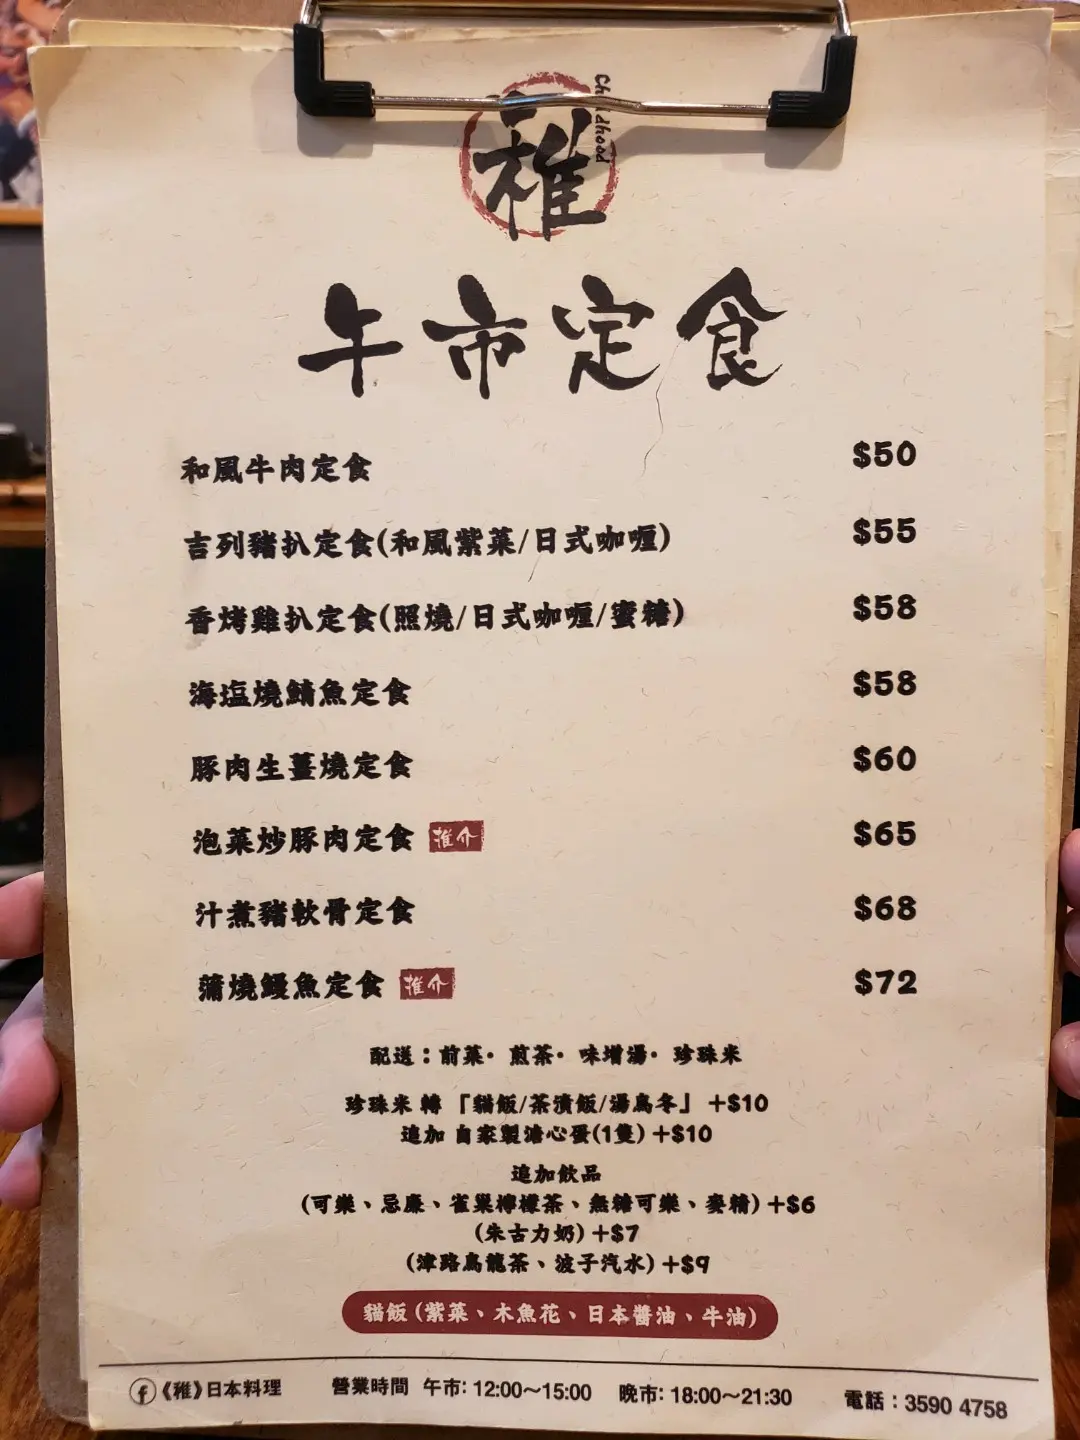 稚
Childhood
午市定食
和風牛肉定食 $50
吉列豬扒定食(和風紫菜/日式咖喱) $55
香烤雞扒定食(照燒/日式咖喱/蜜糖) $58
海塩燒鯖魚定食 $58
豚肉生薑燒定食 $60
泡菜炒豚肉定食 推介 $65
汁煮豬軟骨定食 $68
蒲燒鰻魚定食 推介 $72
配送：前菜・煎茶・味增湯・珍珠米
珍珠米 轉 「貓飯/茶漬飯/湯烏冬」 +$10
追加 自家製溏心蛋(1隻) +$10
追加飲品
(可樂、忌廉、雀巢檸檬茶、無糖可樂、麥精) +$6
(朱古力奶) +$7
(津路烏龍茶、波子汽水) +$9
貓飯 (紫菜、木魚花、日本醬油、牛油)
f 《稚》日本料理 營業時間 午市: 12:00～15:00 晚市: 18:00～21:30 電話：3590 4758